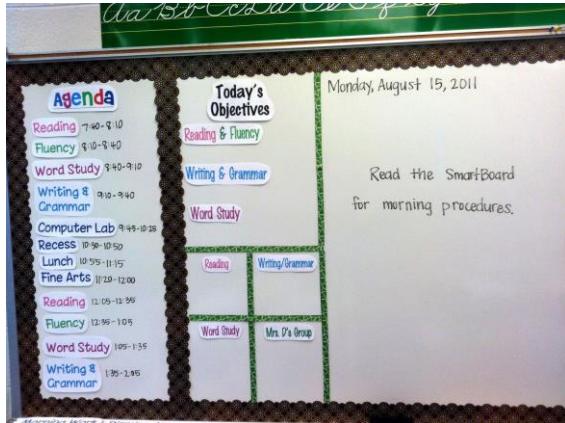 Aa Bb Cc Dd Ee Ff Gg
Agenda
Reading 7:40-8:10
Fluency 8:10-8:40
Word Study 8:40-9:10
Writing & 9:10-9:40
Grammar
Computer Lab 9:45-10:25
Recess 10:30-10:50
Lunch 10:55-11:15
Fine Arts 11:20-12:00
Reading 12:05-12:35
Fluency 12:35-1:05
Word Study 1:05-1:35
Writing & 1:35-2:05
Grammar
Today's
Objectives
Reading & Fluency
Writing & Grammar
Word Study
Reading
Writing/Grammar
Word Study
Mrs. D's Group
Monday, August 15, 2011
Read the SmartBoard
for morning procedures.